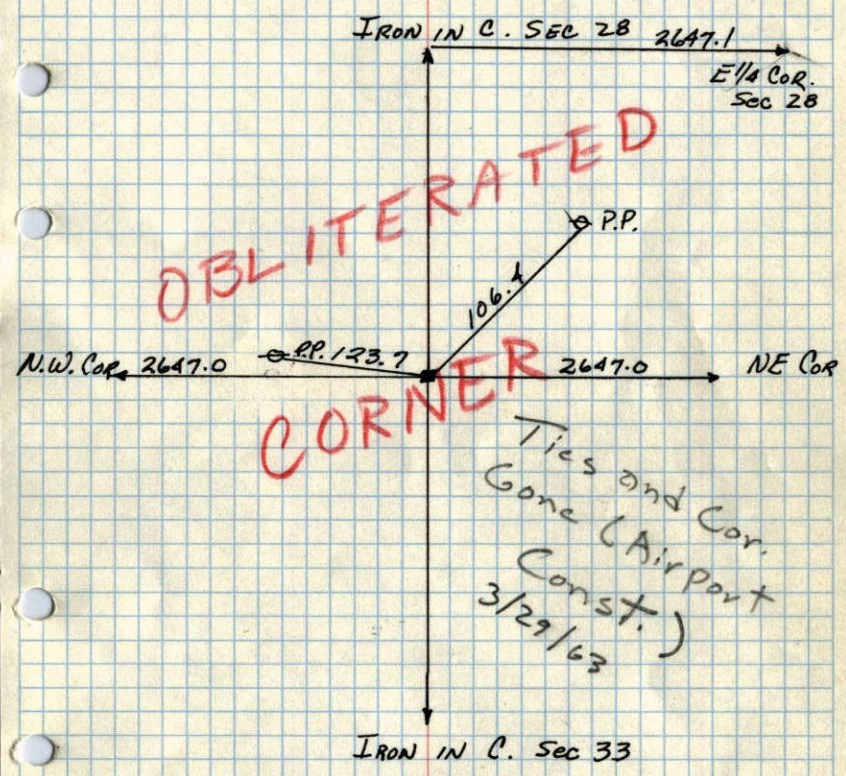 IRON IN C. SEC 28 2647.1
E 1/4 COR.
Sec 28
OBLITERATED
P.P.
106.4
N.W. COR 2647.0 P.P. 123.7 2647.0 NE COR
CORNER
Ties and Cor.
Gone (Airport
Const.)
3/29/63
IRON IN C. Sec 33